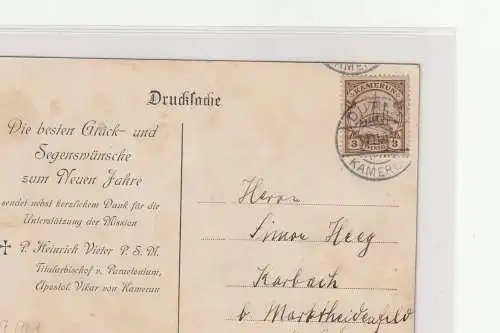 Drucksache
Die besten Glück- und
Segenswünsche
zum Neuen Jahre
sendet nebst herzlichem Dank für die
Unterstützung der Mission
P. Heinrich Vieter P. S. M.
Titularbischof v. Paraetonium,
Apostol. Vikar von Kamerun
KAMERUN
3 3
KAMERU
Herrn
Simon Heeg
Karbach
b Marktheidenfeld